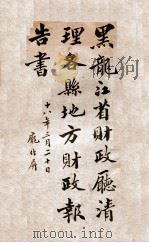 黑龍江省財政廳清
理各縣地方財政報
告書
十八年三月二十日
龐作屏